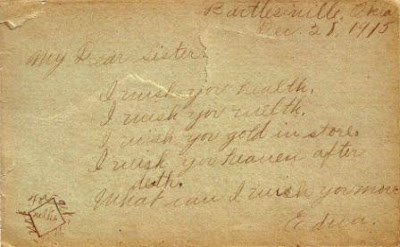 Bartlesville, Okla
Dec. 28, 1915
My Dear sister.
I wish you health.
I wish you welth.
I wish you gold in store.
I wish you heaven after
deth.
What can I wish you more